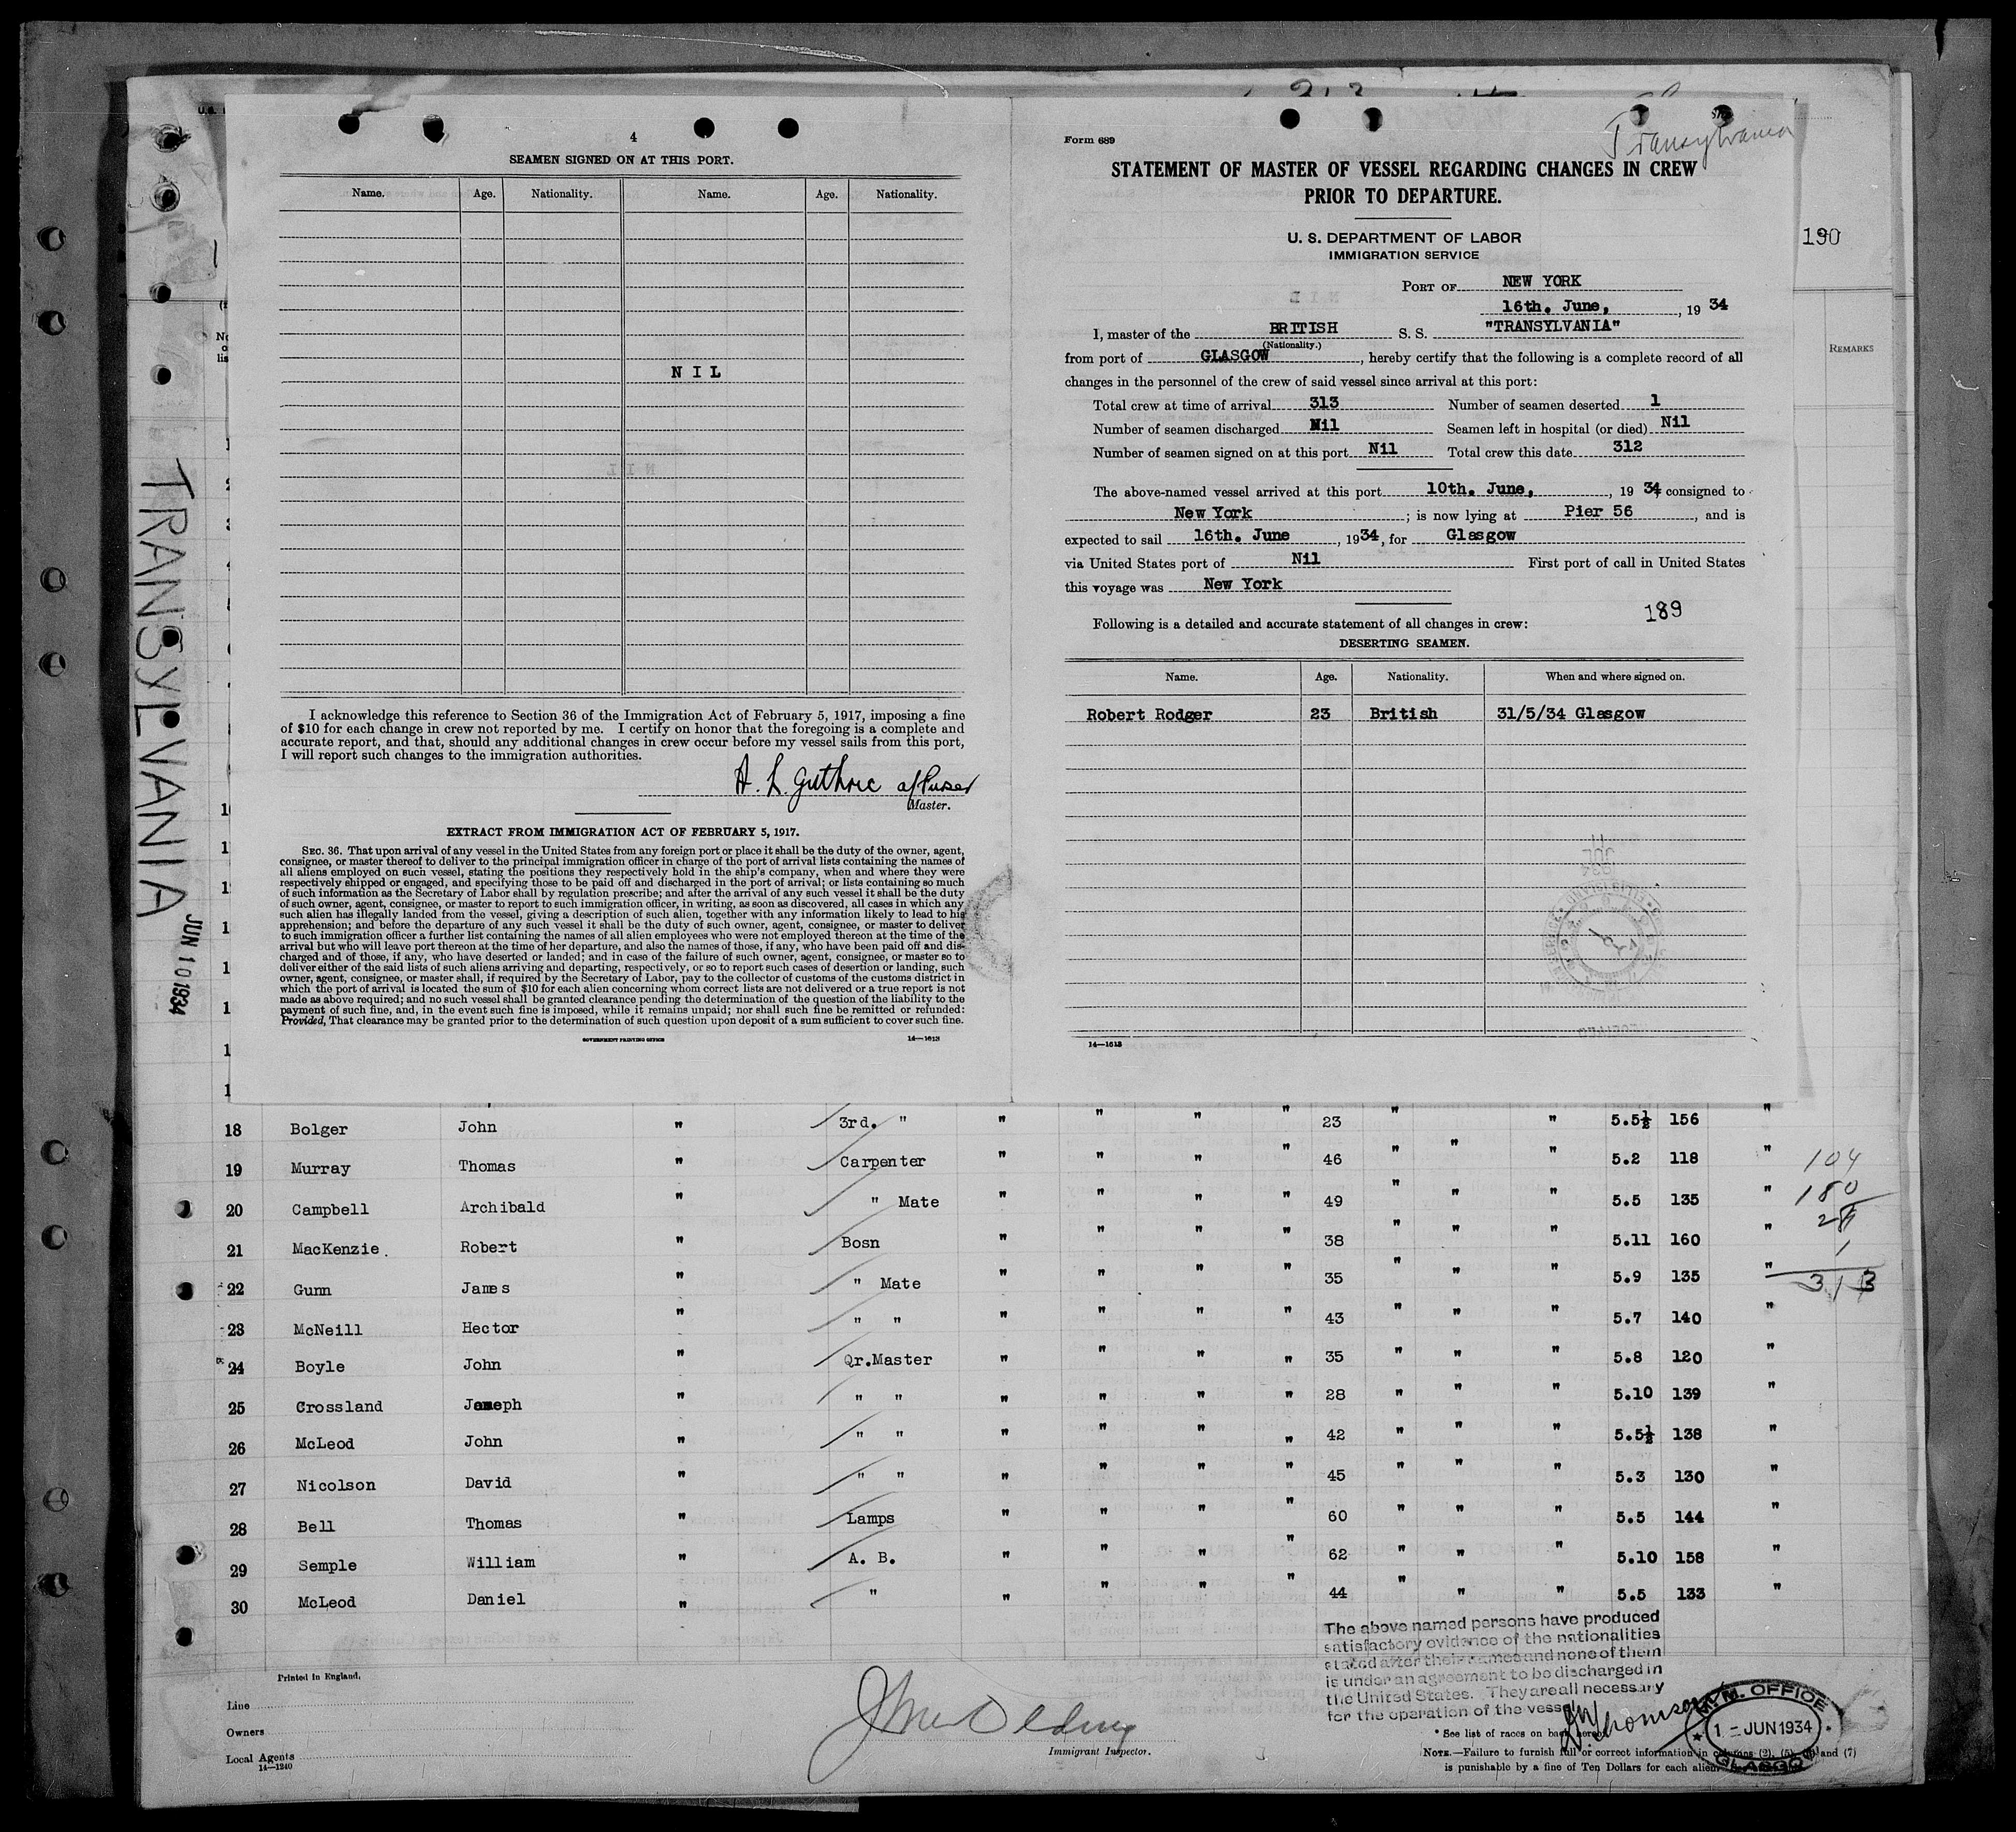 4
SEAMEN SIGNED ON AT THIS PORT.
Name. Age. Nationality. Name. Age. Nationality.
NIL
I acknowledge this reference to Section 36 of the Immigration Act of February 5, 1917, imposing a fine
of $10 for each change in crew not reported by me. I certify on honor that the foregoing is a complete and
accurate report, and that, should any additional changes in crew occur before my vessel sails from this port,
I will report such changes to the immigration authorities.
A. L. Guthrie
Master.
EXTRACT FROM IMMIGRATION ACT OF FEBRUARY 5, 1917.
SEC. 36. That upon arrival of any vessel in the United States from any foreign port or place it shall be the duty of the owner, agent,
consignee, or master thereof to deliver to the principal immigration officer in charge of the port of arrival lists containing the names of
all aliens employed on such vessel, stating the positions they respectively hold in the ship's company, when and where they were
respectively shipped or engaged, and specifying those to be paid off and discharged in the port of arrival; or lists containing so much
of such information as the Secretary of Labor shall by regulation prescribe; and after the arrival of any such vessel it shall be the duty
of such owner, agent, consignee, or master to report to such immigration officer, in writing, as soon as discovered, all cases in which any
such alien has illegally landed from the vessel, giving a description of such alien, together with any information likely to lead to his
apprehension; and before the departure of any such vessel it shall be the duty of such owner, agent, consignee, or master to deliver
to such immigration officer a further list containing the names of all alien employees who were not employed thereon at the time of the
arrival but who will leave port thereon at the time of her departure, and also the names of those, if any, who have been paid off and dis-
charged and of those, if any, who have deserted or landed; and in case of the failure of such owner, agent, consignee, or master so to
deliver either of the said lists of such aliens arriving and departing, respectively, or so to report such cases of desertion or landing, such
owner, agent, consignee, or master shall, if required by the Secretary of Labor, pay to the collector of customs of the customs district in
which the port of arrival is located the sum of $10 for each alien concerning whom correct lists are not delivered or a true report is not
made as above required; and no such vessel shall be granted clearance pending the determination of the question of the liability to the
payment of such fine, and, in the event such fine is imposed, while it remains unpaid; nor shall such fine be remitted or refunded:
Provided, That clearance may be granted prior to the determination of such question upon deposit of a sum sufficient to cover such fine.
GOVERNMENT PRINTING OFFICE 14—1613
Form 689
Transylvania
STATEMENT OF MASTER OF VESSEL REGARDING CHANGES IN CREW
PRIOR TO DEPARTURE.
U. S. DEPARTMENT OF LABOR
IMMIGRATION SERVICE
PORT OF NEW YORK
16th. June, , 19 34
I, master of the BRITISH S. S. "TRANSYLVANIA"
(Nationality.)
from port of GLASGOW, hereby certify that the following is a complete record of all
changes in the personnel of the crew of said vessel since arrival at this port:
Total crew at time of arrival 313 Number of seamen deserted 1
Number of seamen discharged Nil Seamen left in hospital (or died) Nil
Number of seamen signed on at this port Nil Total crew this date 312
The above-named vessel arrived at this port 10th. June, , 19 34, consigned to
New York ; is now lying at Pier 56, and is
expected to sail 16th. June, 1934, for Glasgow
via United States port of Nil First port of call in United States
this voyage was New York
189
Following is a detailed and accurate statement of all changes in crew:
DESERTING SEAMEN.
Name. Age. Nationality. When and where signed on.
Robert Rodger 23 British 31/5/34 Glasgow
14—1613
190
REMARKS
TRANSYLVANIA
JUN 10 1934
18 Bolger John " 3rd. " " " " " 23 " " 5.5½ 156 "
19 Murray Thomas " Carpenter " " " " 46 " " " 5.2 118 "
20 Campbell Archibald " " Mate " " " " 49 " " " 5.5 135 "
21 MacKenzie. Robert " Bosn " " " " 38 " " " 5.11 160 "
22 Gunn James " " Mate " " " " 35 " " " 5.9 135 "
23 McNeill Hector " " " " " " " 43 " " " 5.7 140 "
24 Boyle John " Qr.Master " " " " 35 " " " 5.8 120 "
25 Crossland Joseph " " " " " " " 28 " " " 5.10 139 "
26 McLeod John " " " " " " " 42 " " " 5.5½ 138 "
27 Nicolson David " " " " " " " 45 " " " 5.3 130 "
28 Bell Thomas " Lamps " " " " 60 " " " 5.5 144 "
29 Semple William " A. B. " " " " 62 " " " 5.10 158 "
30 McLeod Daniel " " " " " " 44 " " " 5.5 133 "
104
180
28
1
313
The above named persons have produced
satisfactory evidence of the nationalities
stated after their names and none of them
is under an agreement to be discharged in
the United States. They are all necessary
for the operation of the vessel
Printed in England.
Line
Owners
Local Agents
14—1240
Immigrant Inspector.
* See list of races on back hereof.
NOTE.—Failure to furnish full or correct information in columns (2), (5), and (7)
is punishable by a fine of Ten Dollars for each alien
M. M. OFFICE
1 - JUN 1934
GLASGOW